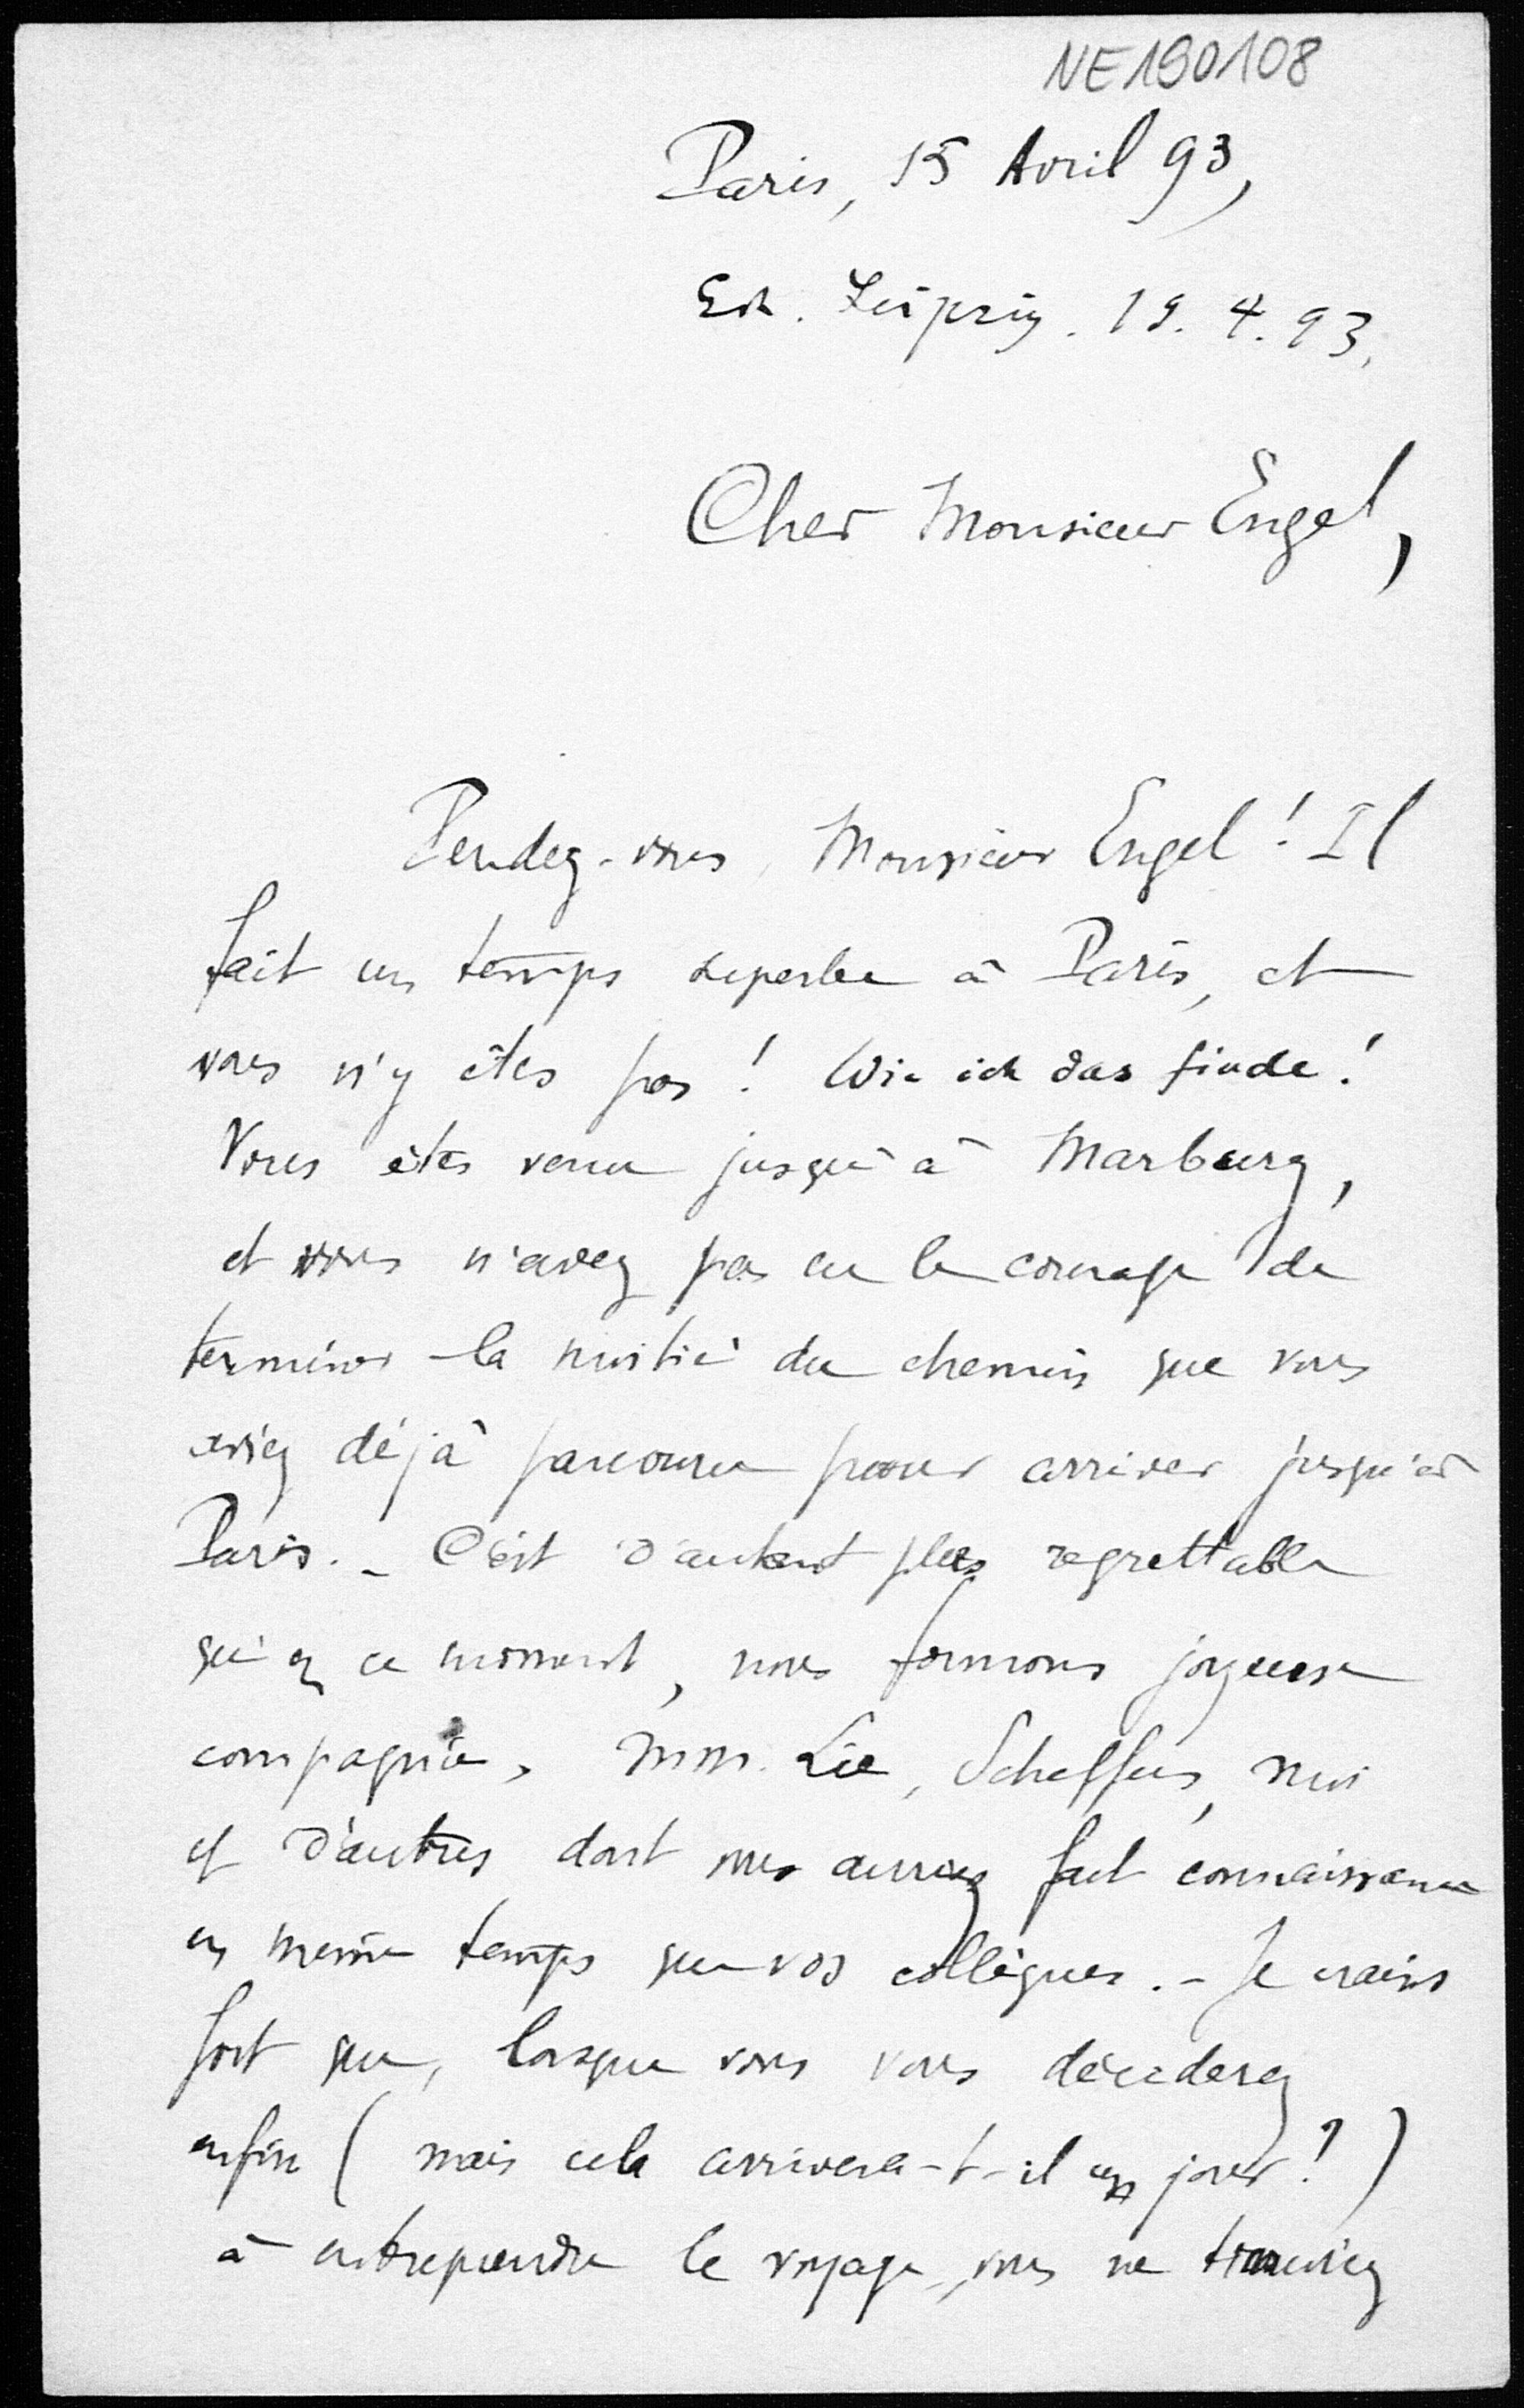 NE190108
Paris, 15 Avril 93,
Erh. Leipzig. 19. 4. 93.
Cher Monsieur Engel,
Pendez-vous, Monsieur Engel! Il
fait un temps superbe à Paris, et
vous n'y êtes pas! Wie ich das finde!
Vous êtes venu jusqu'à Marburg,
et vous n'avez pas eu le courage de
terminer la moitié du chemin que vous
aviez déjà parcouru pour arriver jusqu'à
Paris. - C'est d'autant plus regrettable
qu'en ce moment, nous formons joyeuse
compagnie, MM. Lie, Scheffers, moi
et d'autres dont vous auriez fait connaissance
en même temps que vos collègues. - Je crains
fort que, lorsque vous vous déciderez
enfin (mais cela arrivera-t-il un jour!)
à entreprendre le voyage, vous ne trouviez